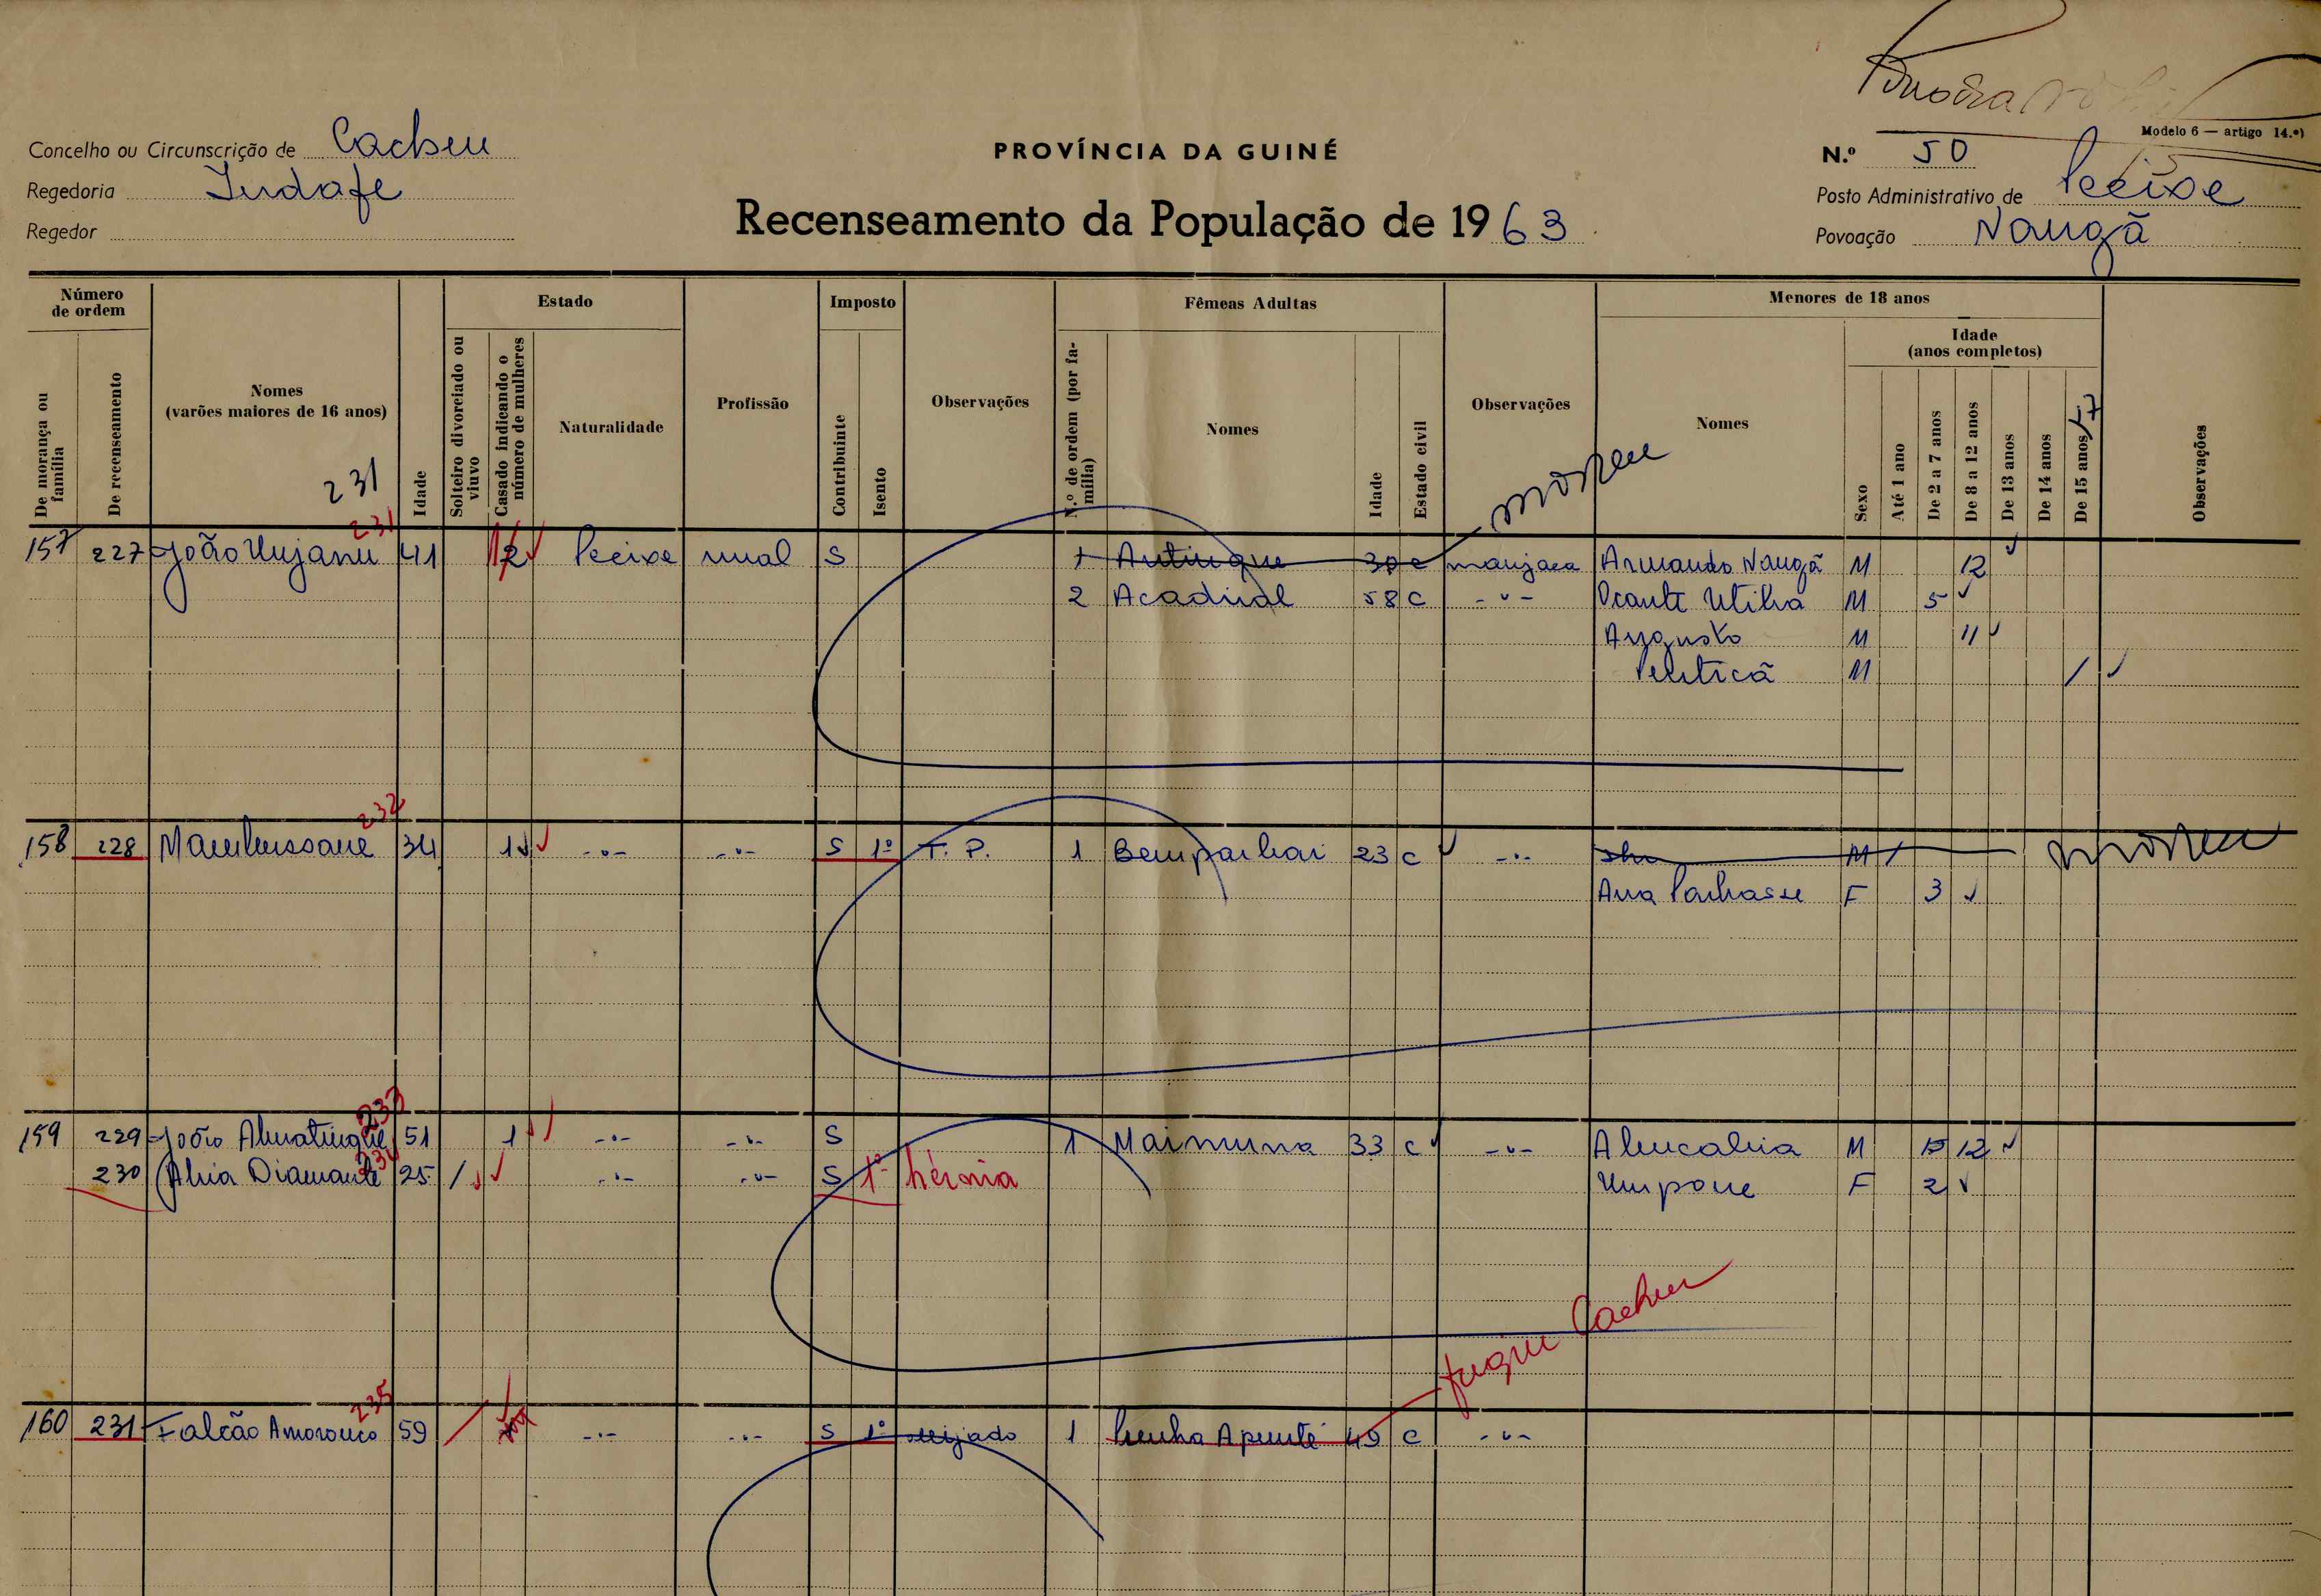 Modelo 6 — artigo 14.º)
Concelho ou Circunscrição de Cacheu
PROVÍNCIA DA GUINÉ
N.º 50
Regedoria Indafe
Recenseamento da População de 1963
Posto Administrativo de Pecixe
Regedor
Povoação Nangã
Número de ordem
Estado
Imposto
Fêmeas Adultas
Menores de 18 anos
Idade (anos completos)
De morança ou família
De recenseamento
Nomes (varões maiores de 16 anos)
Idade
Solteiro divorciado ou viuvo
Casado indicando o número de mulheres
Naturalidade
Profissão
Contribuinte
Isento
Observações
N.º de ordem (por família)
Nomes
Idade
Estado civil
Observações
Nomes
Sexo
Até 1 ano
De 2 a 7 anos
De 8 a 12 anos
De 13 anos
De 14 anos
De 15 anos /17
Observações
231
morreu
231
157 227 João Unjanu 41 2 Pecixe rural S 1 Antingue 30 c manjaca Armando Nangã M 12
2 Acadinal 58 c -"- Ocante Utilna M 5
Augusto M 11
Penticã M /
232
158 228 34 1 -"- -"- S 1º T. P. 1 Bempanhai 23 c -"- M / morreu
Ana Panhasse F 3
233
159 229 João 51 1 -"- -"- S 1 Maimuna 33 c -"- Alucalia M 12
234
230 Diamante 25 / -"- -"- S 1º hérnia Umpone F 2
fugiu Cacheu
235
160 231 Falcão Amorouco 59 / -"- -"- S 1º aleijado 1 Apenté 49 c -"-